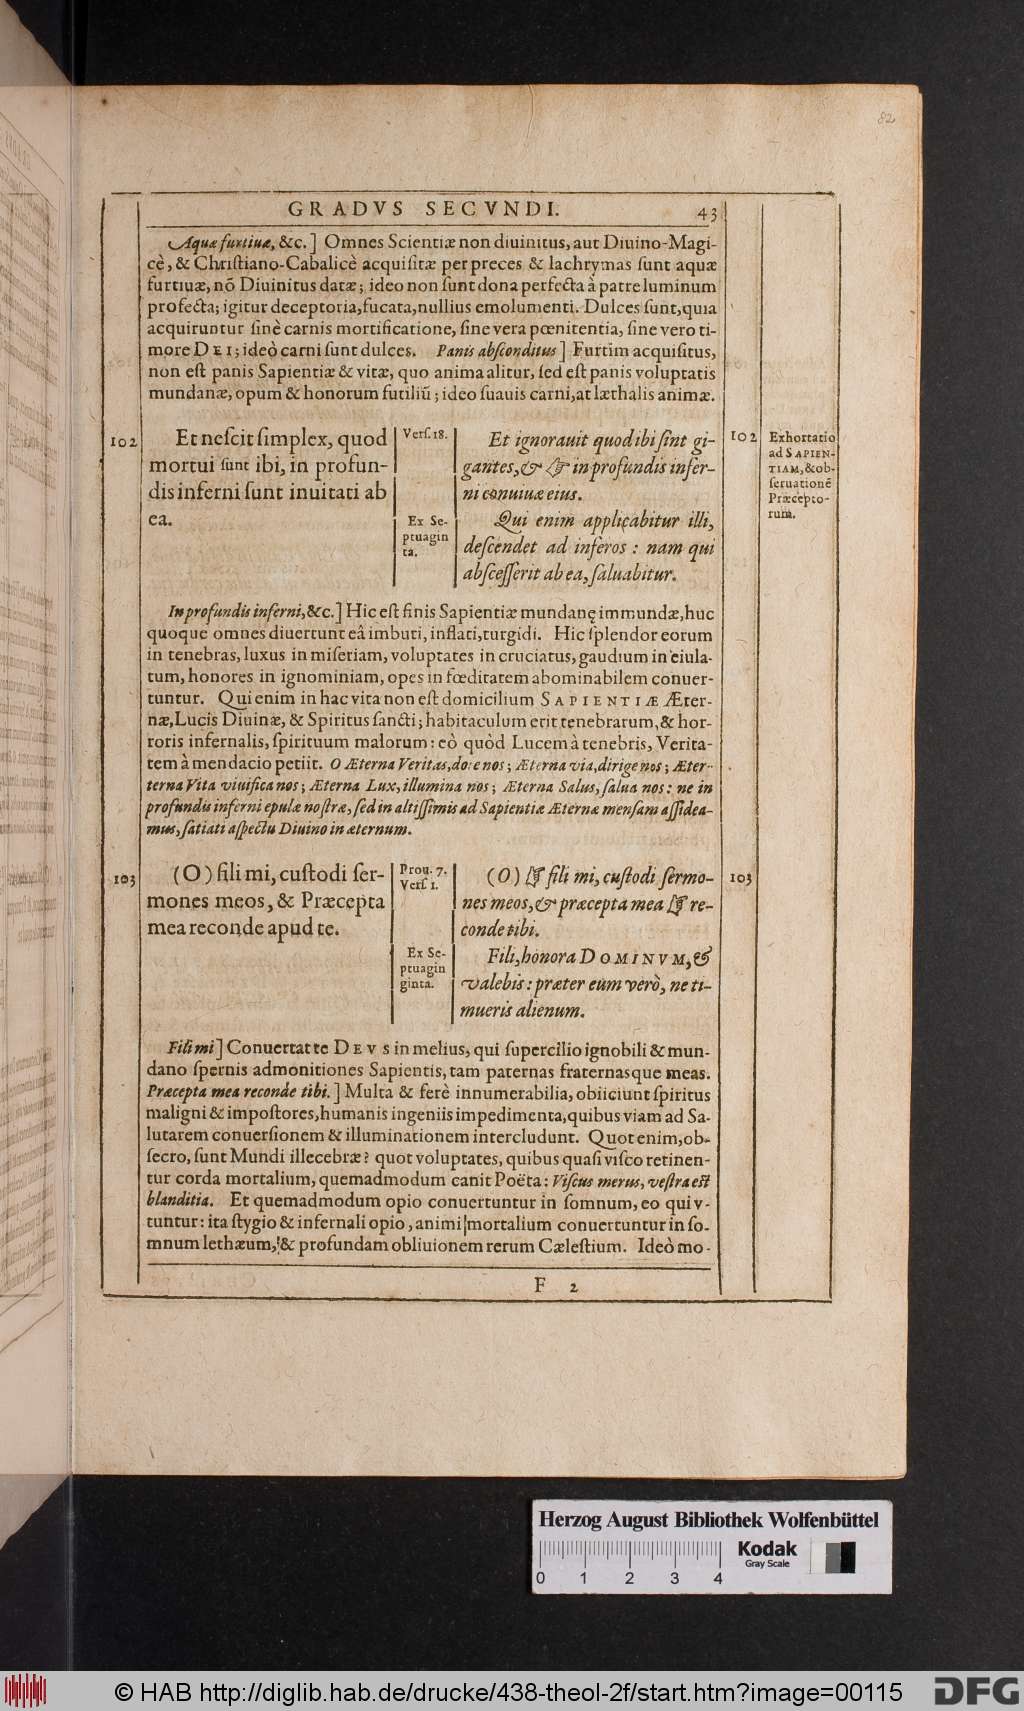 82
GRADVS SECVNDI.
43
Aquæ furtiuæ, &c.] Omnes Scientiæ non diuinitus, aut Diuino-Magi-
cè, & Christiano-Cabalicè acquisitæ per preces & lachrymas sunt aquæ
furtiuæ, nō Diuinitus datæ; ideo non sunt dona perfecta à patre luminum
profecta; igitur deceptoria, fucata, nullius emolumenti. Dulces sunt, quia
acquiruntur sinè carnis mortificatione, sine vera pœnitentia, sine vero ti-
more DEI; ideò carni sunt dulces. Panis absconditus] Furtim acquisitus,
non est panis Sapientiæ & vitæ, quo anima alitur, sed est panis voluptatis
mundanæ, opum & honorum futiliū; ideo suauis carni, at læthalis animæ.
102
Et nescit simplex, quod
mortui sunt ibi, in profun-
dis inferni sunt inuitati ab
ea.
Vers. 18.
Ex Se-
ptuagin
ta.
Et ignorauit quod ibi sint gi-
gantes, & ☞ in profundis infer-
ni conuiuæ eius.
Qui enim applicabitur illi,
descendet ad inferos: nam qui
abscesserit ab ea, saluabitur.
102
Exhortatio
ad SAPIEN-
TIAM, & ob-
seruationē
Præcepto-
rum.
In profundis inferni, &c.] Hic est finis Sapientiæ mundanę immundæ, huc
quoque omnes diuertunt eâ imbuti, inflati, turgidi. Hic splendor eorum
in tenebras, luxus in miseriam, voluptates in cruciatus, gaudium in eiula-
tum, honores in ignominiam, opes in fœditatem abominabilem conuer-
tuntur. Qui enim in hac vita non est domicilium SAPIENTIÆ Æter-
næ, Lucis Diuinæ, & Spiritus sancti; habitaculum erit tenebrarum, & hor-
roris infernalis, spirituum malorum: eò quòd Lucem à tenebris, Verita-
tem à mendacio petiit. O Æterna Veritas, doce nos; Æterna via, dirige nos; Æter-
terna Vita viuifica nos; Æterna Lux, illumina nos; Æterna Salus, salua nos: ne in
profundis inferni epulæ nostræ, sed in altissimis ad Sapientiæ Æternæ mensam assidea-
mus, satiati aspectu Diuino in æternum.
103
(O) fili mi, custodi ser-
mones meos, & Præcepta
mea reconde apud te.
Prou. 7.
Vers. 1.
Ex Se-
ptuagin
ginta.
(O) ☞ fili mi, custodi sermo-
nes meos, & præcepta mea ☞ re-
conde tibi.
Fili, honora DOMINVM, &
valebis: præter eum verò, ne ti-
mueris alienum.
103
Fili mi] Conuertat te DEVS in melius, qui supercilio ignobili & mun-
dano spernis admonitiones Sapientis, tam paternas fraternasque meas.
Præcepta mea reconde tibi.] Multa & ferè innumerabilia, obiiciunt spiritus
maligni & impostores, humanis ingeniis impedimenta, quibus viam ad Sa-
lutarem conuersionem & illuminationem intercludunt. Quot enim, ob-
secro, sunt Mundi illecebræ? quot voluptates, quibus quasi visco retinen-
tur corda mortalium, quemadmodum canit Poëta: Viscus merus, vestra est
blanditia. Et quemadmodum opio conuertuntur in somnum, eo qui v-
tuntur: ita stygio & infernali opio, animi mortalium conuertuntur in so-
mnum lethæum, & profundam obliuionem rerum Cælestium. Ideò mo-
F 2
Herzog August Bibliothek Wolfenbüttel
Kodak
Gray Scale
0 1 2 3 4
© HAB http://diglib.hab.de/drucke/438-theol-2f/start.htm?image=00115
DFG